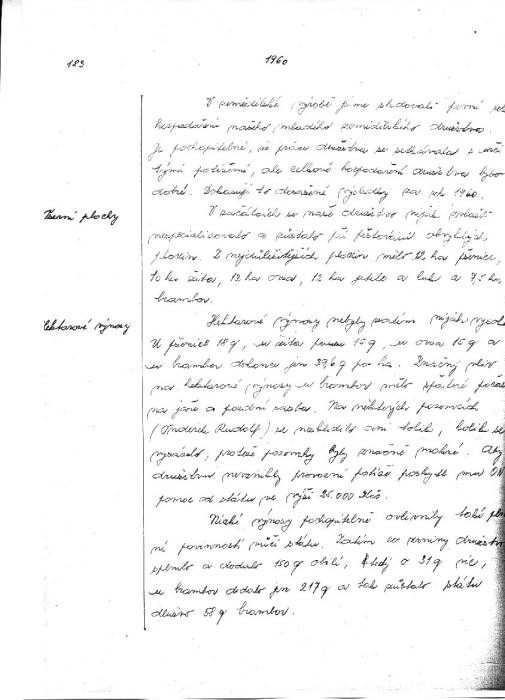 183
1960
V zemědělské výrobě jsme sledovali první rok
hospodaření našeho mladého zemědělského družstva.
Je pochopitelné, že práce družstva se setkávala s urči
tými potížemi, ale celkové hospodaření družstva bylo
dobré. Dokazují to dosažené výsledky za rok 1960.
Osevní plochy
V začátcích se naše družstvo nijak zvlášť
nespecializovalo a zůstalo při pěstování obvyklých
plodin. Z nejdůležitějších plodin mělo 22 ha pšenice,
10 ha žita, 12 ha ovsa, 12 ha jetele a luk a 7,5 ha
brambor.
Hektarové výnosy
Hektarové výnosy nebyly zatím nijak vysoké
U pšenice 18 q, u žita 15 q, u ovsa 15 q a
u brambor dokonce jen 39,6 q po ha. Značný vliv
na hektarové výnosy u brambor mělo špatné počasí
na jaře a pozdní sazba. Na některých pozemcích
(Vinderlich Rudolf) se nesklidilo ani tolik, kolik se
vysázelo, protože pozemky byly značně mokré. Aby
družstvu nevznikly provozní potíže poskytl mu ON
pomoc od státu ve výši 25.000 Kčs.
Nízké výnosy pochopitelně ovlivnily také pl
ní povinností vůči státu. Zatím co termíny družstvo
splnilo a dodalo 150 q obilí, tedy o 31 q víc,
u brambor dodalo jen 217 q a tak zůstalo státu
dlužno 58 q brambor.